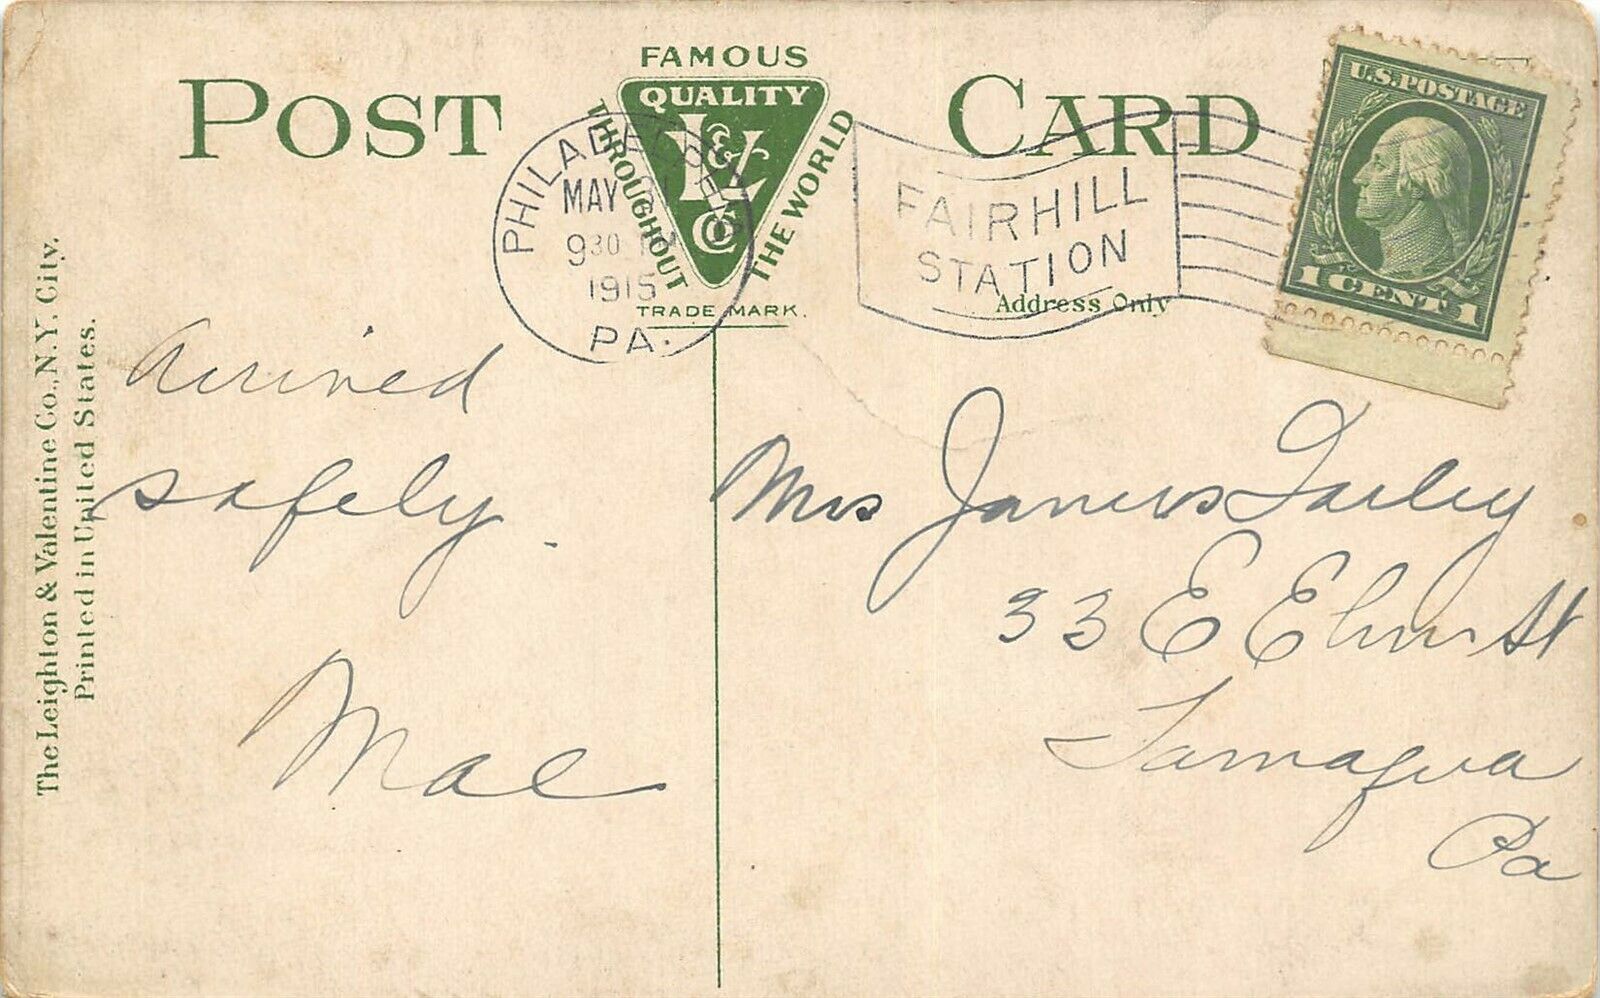 POST CARD
FAMOUS
QUALITY
THROUGHOUT
THE WORLD
L&V
Co
TRADE MARK.
PHILADELPHIA
MAY
930 PM
1915
PA.
FAIRHILL
STATION
U.S. POSTAGE
1 CENT 1
Address Only
The Leighton & Valentine Co., N.Y. City.
Printed in United States.
Arrived
safely.
Mae
Mrs James Farley
33 E Elm St
Tamaqua
Pa